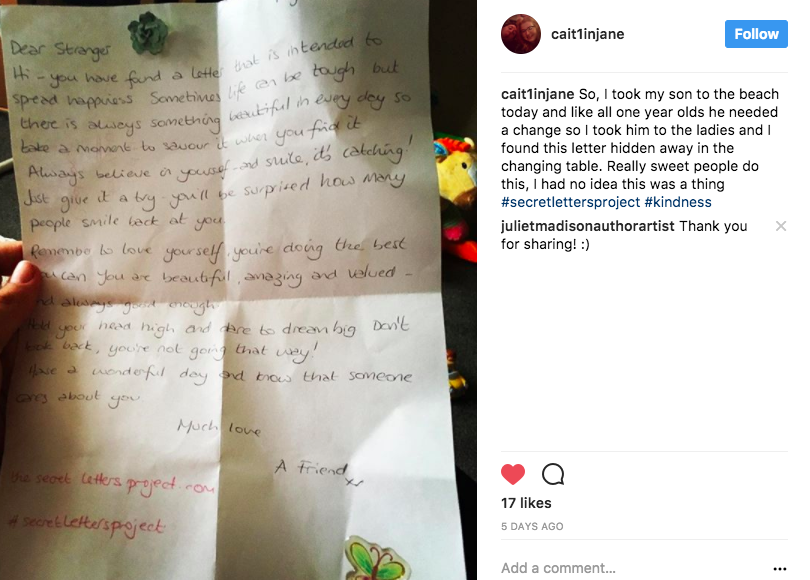 Dear Stranger
Hi - you have found a letter that is intended to
spread happiness Sometimes life can be tough but
there is always something beautiful in every day so
take a moment to savour it when you find it
Always believe in yourself - and smile, it's catching!
Just give it a try - you'll be surprised how many
people smile back at you.
Remember to love yourself, you're doing the best
you can You are beautiful, amazing and valued -
and always good enough
Hold your head high and dare to dream big Don't
look back, you're not going that way!
Have a wonderful day and know that someone
cares about you
Much love
A Friend
xx
the secret letters project.com
#secretlettersproject
cait1injane
Follow
cait1injane So, I took my son to the beach
today and like all one year olds he needed
a change so I took him to the ladies and I
found this letter hidden away in the
changing table. Really sweet people do
this, I had no idea this was a thing
#secretlettersproject #kindness
julietmadisonauthorartist Thank you
for sharing! :)
17 likes
5 DAYS AGO
Add a comment...